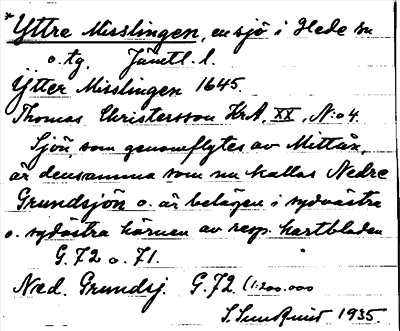 *Yttre Misslingen, en sjö i Hede sn
o. tg. Jämtl. l.
Ytter Misslingen 1645.
Thomas Christersson KrA, XX, N:o 4.
Sjön, som genomflytes av Mittån,
är densamma som nu kallas Nedre
Grundsjön o. är belägen i sydvästra
o. sydöstra hörnen av resp. kartbladen
G. 72 o. 71.
Ned. Grundsj. G. 72 (1:200.000
S. Sundquist 1935.